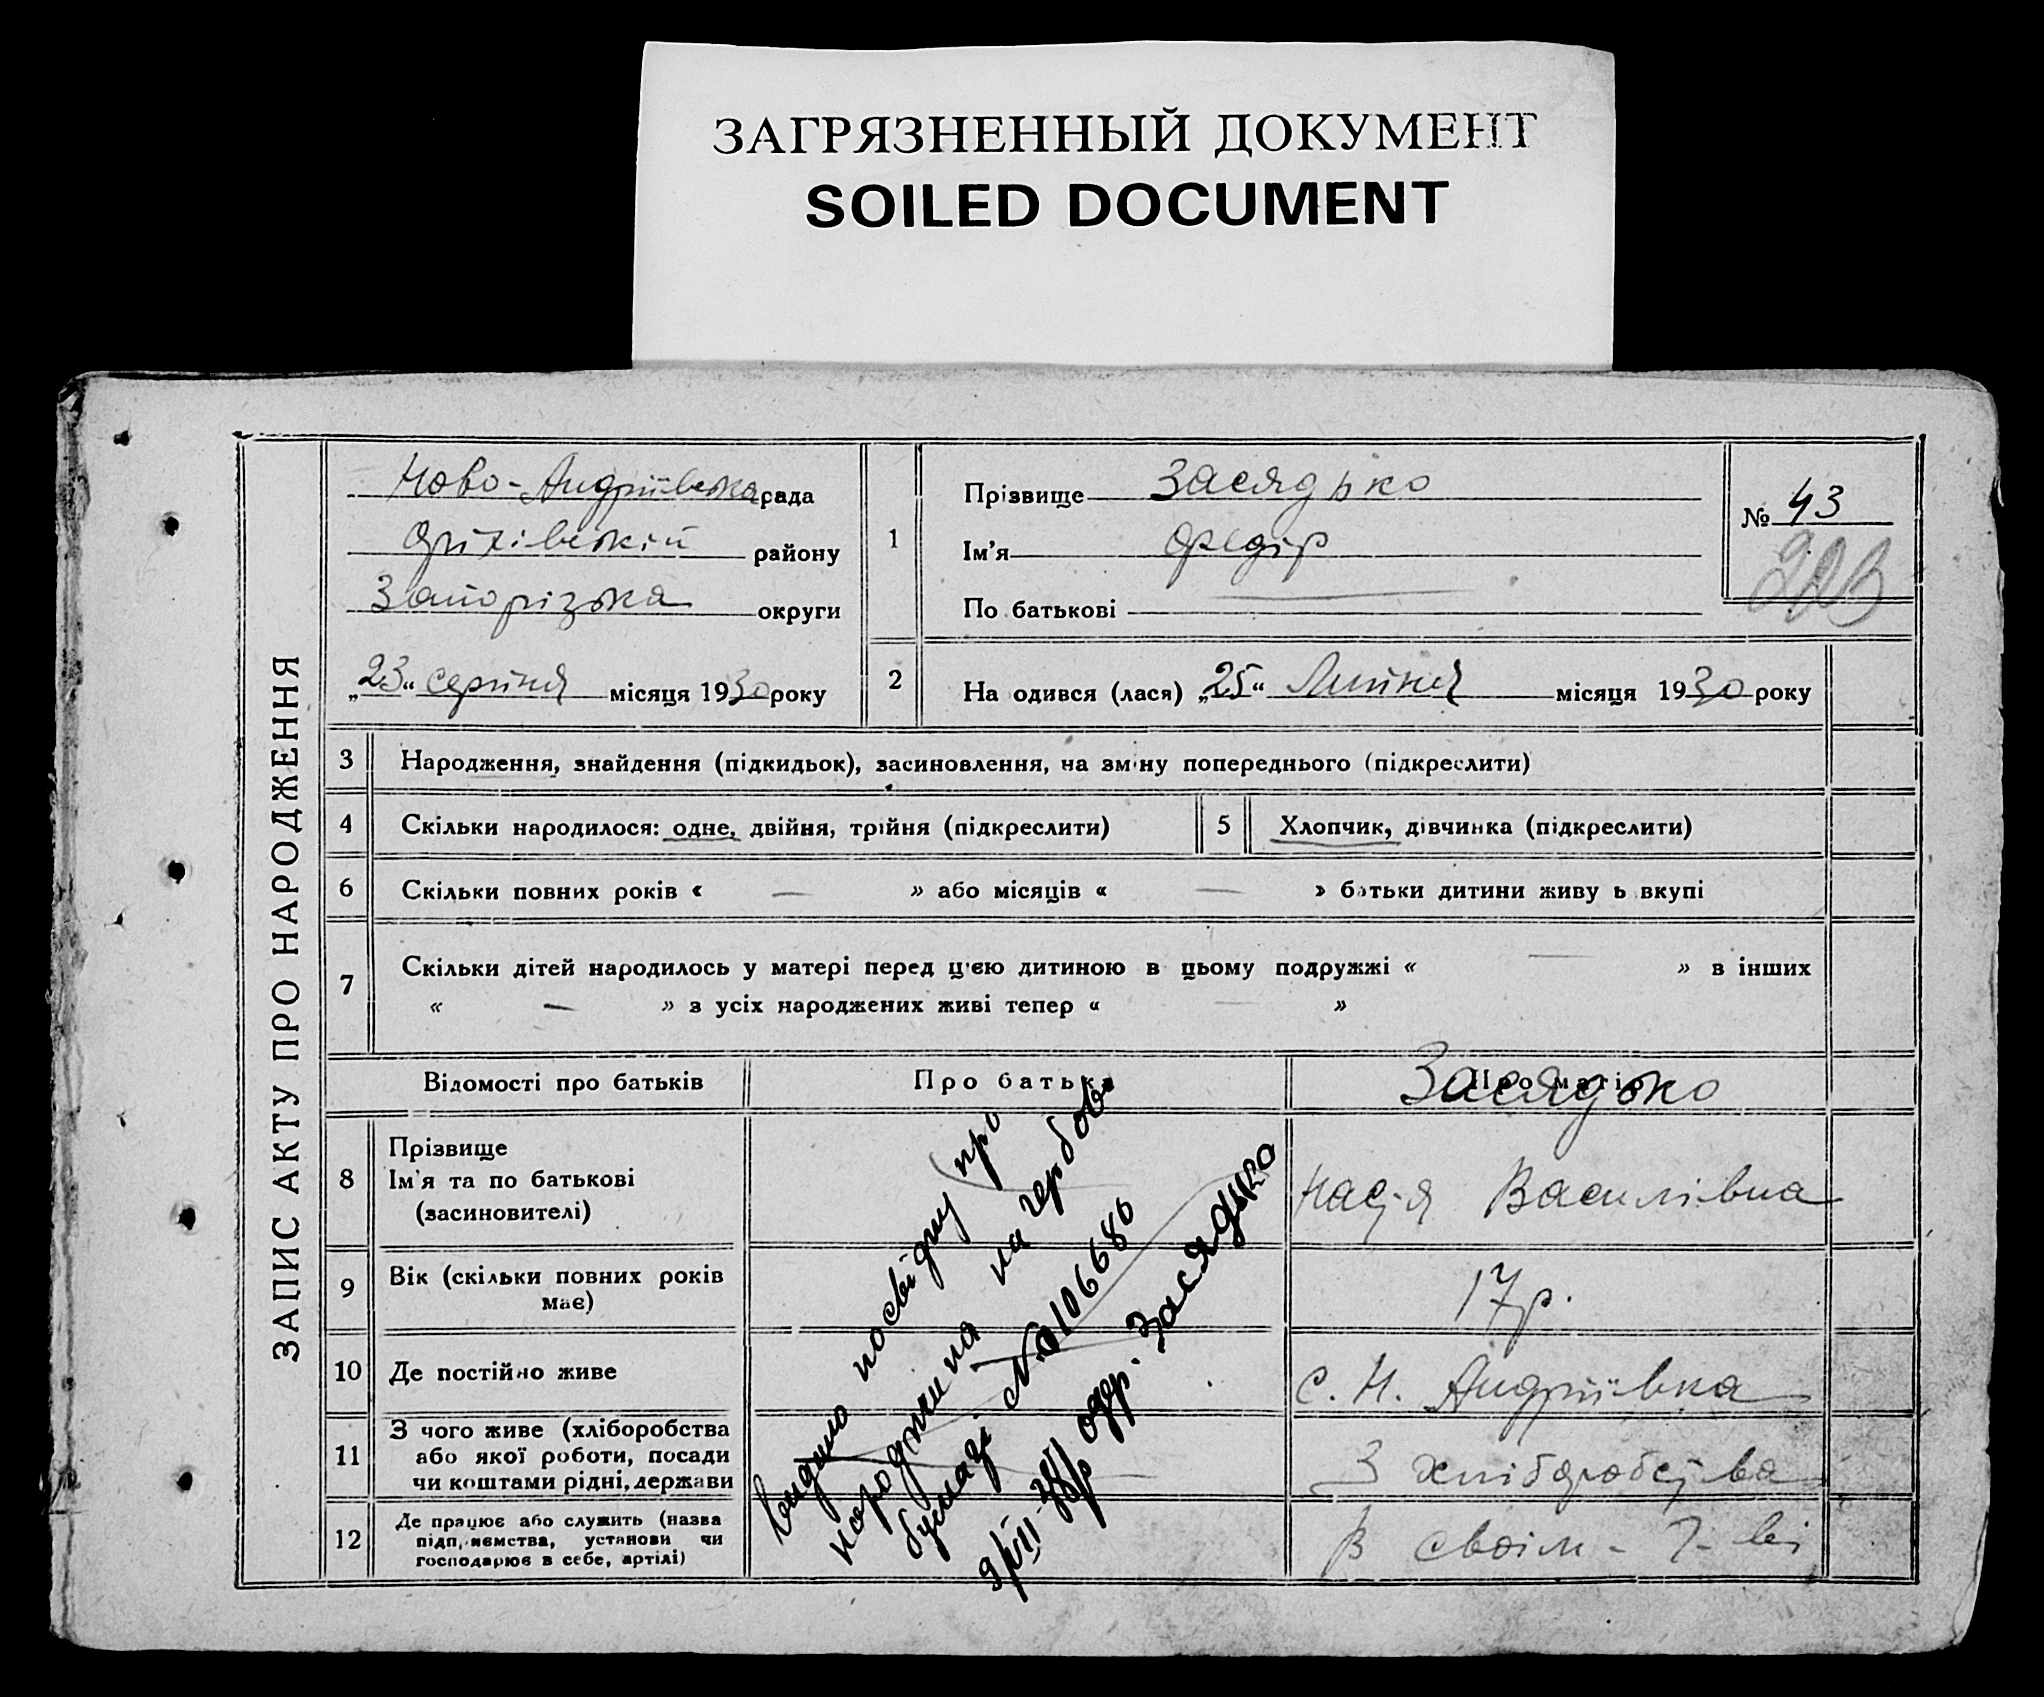 ЗАГРЯЗНЕННЫЙ ДОКУМЕНТ
SOILED DOCUMENT
ЗАПИС АКТУ ПРО НАРОДЖЕННЯ
Ново-Андріївська рада
Оріхівській району
Запорізька округи
„23“ серпня місяця 1930 року
1
Прізвище Засядько
Ім'я Федір
По батькові —
№ 43
2
На одився (лася) „25“ Липня місяця 1930 року
3 Народження, знайдення (підкидьок), засиновлення, на зміну попереднього (підкреслити)
4 Скільки народилося: одне, двійня, трійня (підкреслити)
5 Хлопчик, дівчинка (підкреслити)
6 Скільки повних років « — » або місяців « — » батьки дитини живу ь вкупі
7 Скільки дітей народилось у матері перед цією дитиною в цьому подружжі « — » в інших
« — » з усіх народжених живі тепер « — »
Відомості про батьків
Про батька
Про матір
Засядько
8 Прізвище
Ім'я та по батькові
(засиновителі)
Настя Василівна
9 Вік (скільки повних років
має)
17 р.
10 Де постійно живе
с. Н. Андріївка
11 З чого живе (хліборобства
або якої роботи, посади
чи коштами рідні, держави
З хліборобства
12 Де працює або служить (назва
підприємства, установи чи
господарює в себе, артілі)
В своім
Видано посвідку про
народження на гербові
бумазі № 0106680
Засядько